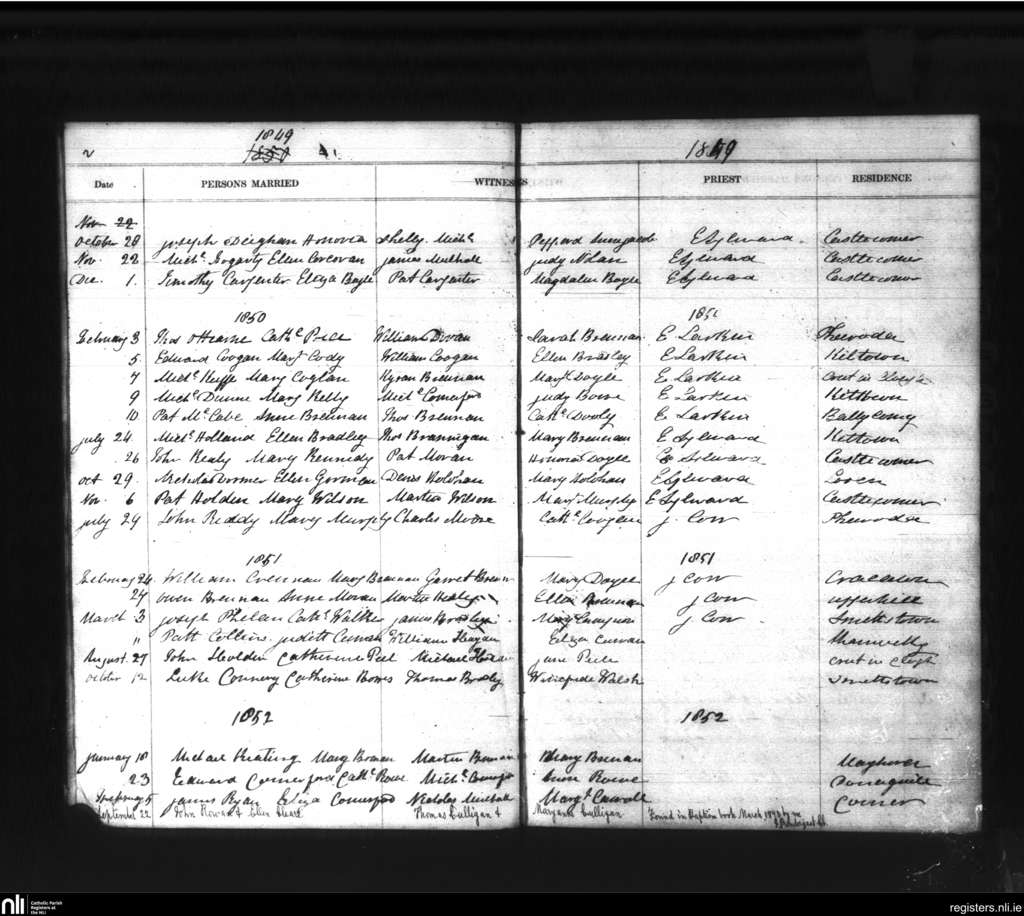 2
1849
1850
1849
Date PERSONS MARRIED WITNESSES PRIEST RESIDENCE
Nov 22
October 28 Joseph Deighan Honoria Shelly Michl Pefferd E Sylward Castlecomer
Nov. 22 Michl Fogarty Ellen Corcoran James Mulhall Judy Nolan E Sylward Castlecomer
Dec. 1. Timothy Carpenter Eliza Boyle Pat Carpenter Magdalen Boyle E Sylward Castlecomer
1850 1850
February 3 Thos OHearne Cathe William Doran Sarah Brennan E Larkin
5 Edward Coogan Margt Cody William Coogan Ellen Bradley E Larkin Kiltown
7 Michl Keiffe Mary Coglan Kyran Brennan Margt Doyle E Larkin
9 Michl Dunne Mary Kelly Michl Comerford Judy Bowe E Larkin Kiltown
10 Pat McCabe Anne Brennan Thos Brennan Cathe Dooly E Larkin Ballycomy
July 24 Michl Holland Ellen Bradley Thos Brannigan Mary Brennan E Sylward Kiltown
26 John Healy Mary Kennedy Pat Moran Honoria Doyle E Sylward Castlecomer
Oct 29. Ellen Gorman Denis Holohan Mary Holohan E Sylward
Nov. 6 Pat Holden Mary Wilson Martin Wilson Margt Murphy E Sylward Castlecomer
July 29 John Reddy Mary Murphy Charles Moore Cathe Coogan J. Cow
1851 1851
February 24 William Brennan Mary Brennan Garret Brenn Mary Doyle J Cow
27 Owen Brennan Anne Moran Martin Healy Ellen Brennan J Cow
March 3 Joseph Phelan Cathe Walker James J. Cow Smithstown
" Patt Collins Judith William Hagan Eliza Curran
August. 27 John Holden Catherine Peel Michael Jane Peele
October 12 Luke Connery Catherine Bowes Thomas Winefride Walsh Smithstown
1852 1852
January 18 Michael Keating Mary Martin Mary Brennan
23 Edward Comerford Cathe Rowe Michl Anne Rowe
February 5 James Ryan Eliza Comerford Nicholas Mulhall Margt Carroll Comer
September 22 John Rowan & Ellen Thomas Culligan & Margaret Culligan Found in Baptism book March
nli
Catholic Parish
Registers at
the NLI
registers.nli.ie